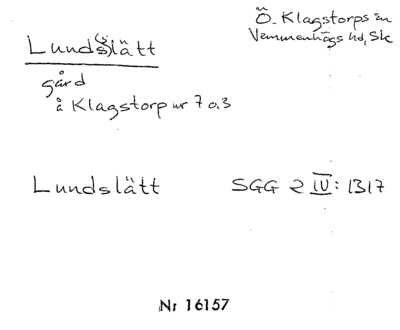 Ö. Klagstorps sn
Vemmenhögs hd, Sk
Lund(s)slätt
gård
å Klagstorp nr 7 o. 3
Lundslätt SGG 2 IV: 1317
Nr 16157